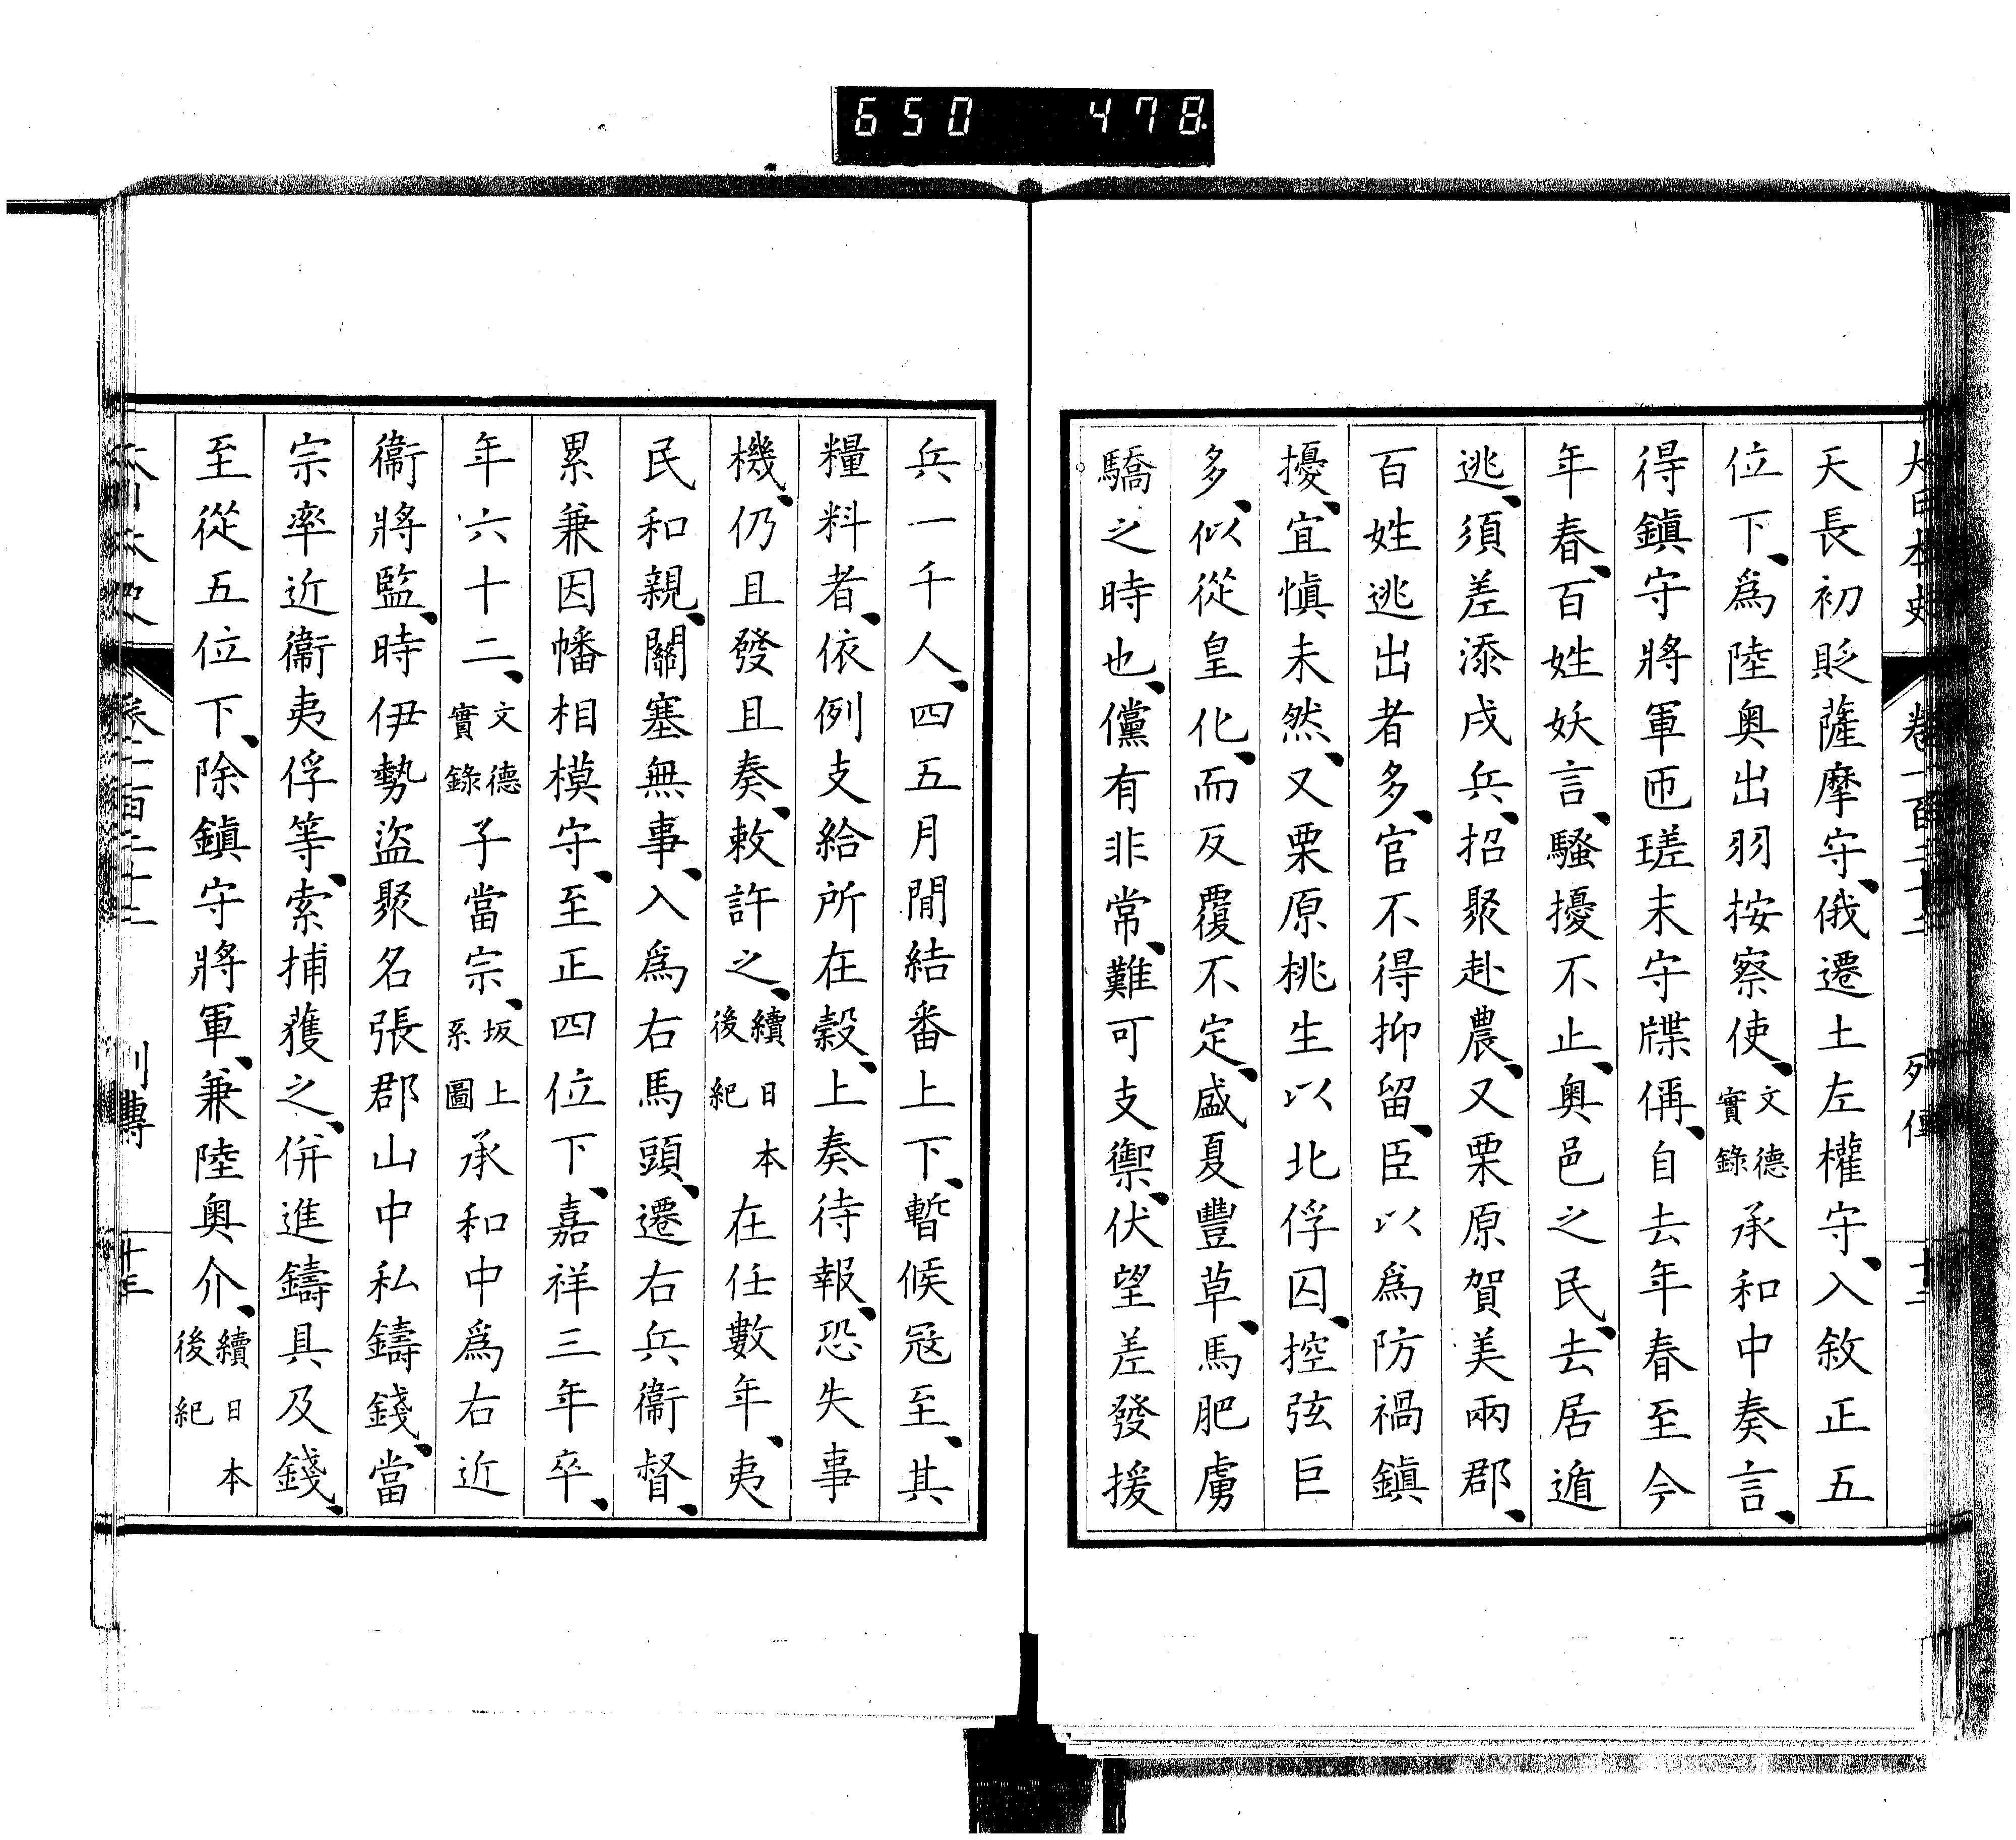 650 478
大日本史 卷一百二十二 列傳 十二
天長初貶薩摩守、俄遷土左權守、入敘正五
位下、爲陸奧出羽按察使、文德實錄承和中奏言、
得鎭守將軍匝瑳末守牒偁、自去年春至今
年春、百姓妖言、騷擾不止、奧邑之民、去居遁
逃、須差添戍兵、招聚赴農、又栗原賀美兩郡、
百姓逃出者多、官不得抑留、臣以爲防禍鎭
擾、宜愼未然、又栗原桃生以北俘囚、控弦巨
多、似從皇化、而反覆不定、盛夏豐草、馬肥虜
驕之時也、儻有非常、難可支禦、伏望差發援
兵一千人、四五月間結番上下、暫候寇至、其
糧料者、依例支給所在穀、上奏待報、恐失事
機、仍且發且奏、敕許之、續日本後紀在任數年、夷
民和親、關塞無事、入爲右馬頭、遷右兵衞督、
累兼因幡相模守、至正四位下、嘉祥三年卒、
年六十二、文德實錄子當宗、坂上系圖承和中爲右近
衞將監、時伊勢盜聚名張郡山中私鑄錢、當
宗率近衞夷俘等、索捕獲之、併進鑄具及錢、
至從五位下、除鎭守將軍、兼陸奧介、續日本後紀